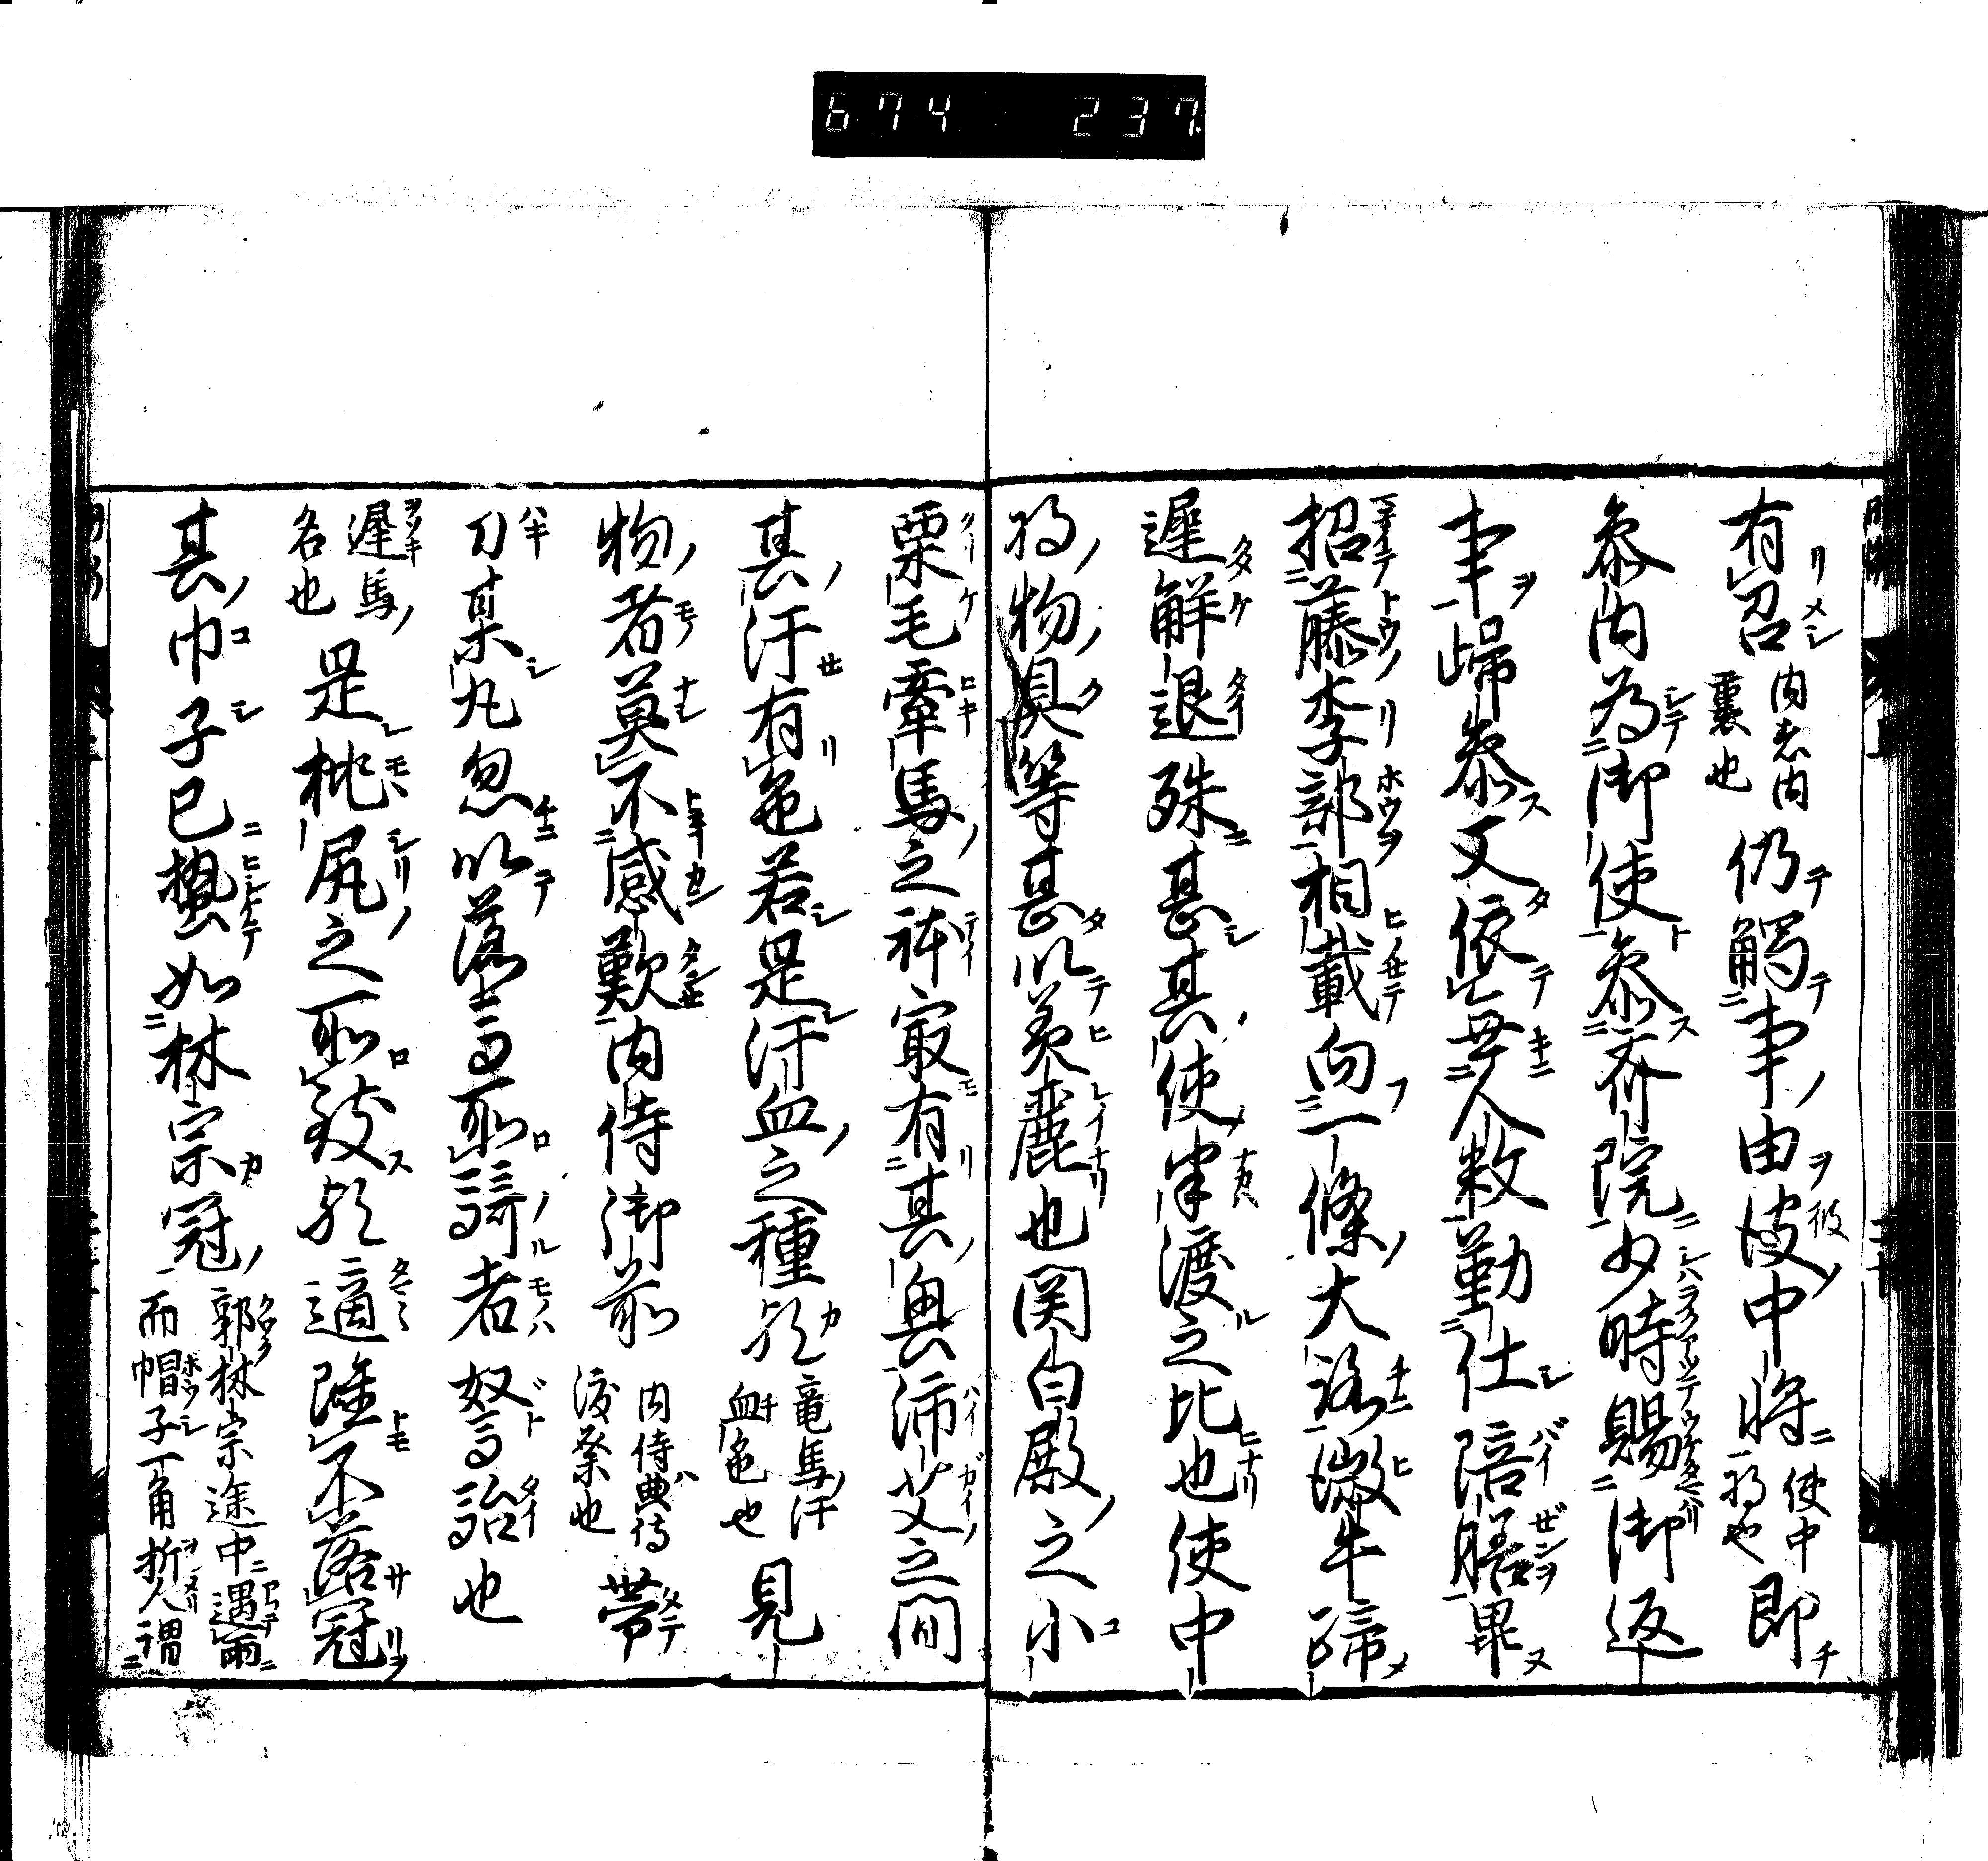 674 237
有召内者内裏也仍觸事由彼中將使中将也即
参内為御使参斎院少時賜御返
事歸参又依無人数勤仕陪膳畢
招藤李部相載向一條大路激牛蹄
遅解退殊甚其使半渡之比也使中
将物具等甚以美麗也関白殿之小
栗毛牽馬之体最有其興沛艾之間
其汗有色若是汗血之種歟竜馬汗血色也見
物者莫不感歎内侍御前内侍典侍渡祭也帯
刀某丸忽以落馬所騎者駑駘也
遅馬名也是桃尻之所致歟適雖不落冠
其巾子已蟄如林宗冠郭林宗途中遇雨而帽子一角折人謂